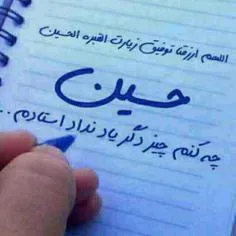 اللهم ارزقنا توفیق زیارت القبره الحسین
حسین
چه کنم چیز دگر یاد نداد استادم ..